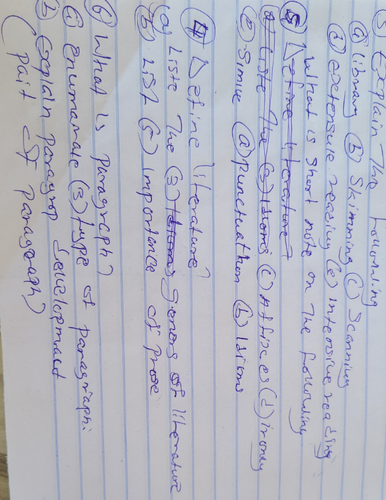 3) Explain The following
(a) library (b) Skimming (c) Scanning
(d) extensive reading (e) intensive reading
What is short note on the following
5 Define literature
a) liste The (3) Idioms (c) Affixes (d) irony
(e) Simile (a) punctuation (b) Idioms
4 Define literature?
(a) Liste The (3) Idioms Genres of literature
(b) List (5) Importance of Prose
6) What is paragraph?
(a) Enumarate (3) type of paragraph:
(b) explain paragrap development
(Part of Paragraph)